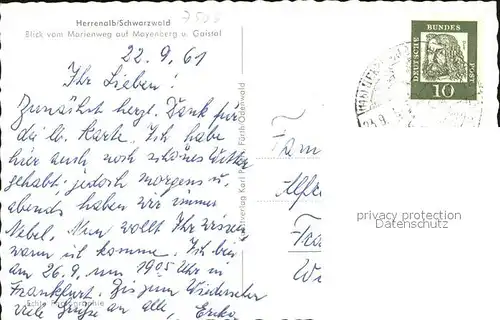 Herrenalb/Schwarzwald
Blick vom Marienweg auf Mayenberg u. Gaistal
22.9.61
Ihr Lieben!
Zunächst herzl. Dank für
die lb. Karte. Ich habe
hier auch noch schönes Wetter
gehabt, jedoch morgens u.
abends haben wir immer
Nebel. Nun wollt Ihr wissen
wann ich komme. Ich bin
am 26.9. um 19⁰⁵ Uhr in
Frankfurt. Bis zum Wiedersehen
viele Grüße an alle,
Echte Photographie
Kunstverlag Karl Fürth/Odenwald
DEUTSCHE BUNDESPOST
10
Fam
Alfre
Fra
privacy protection
Datenschutz